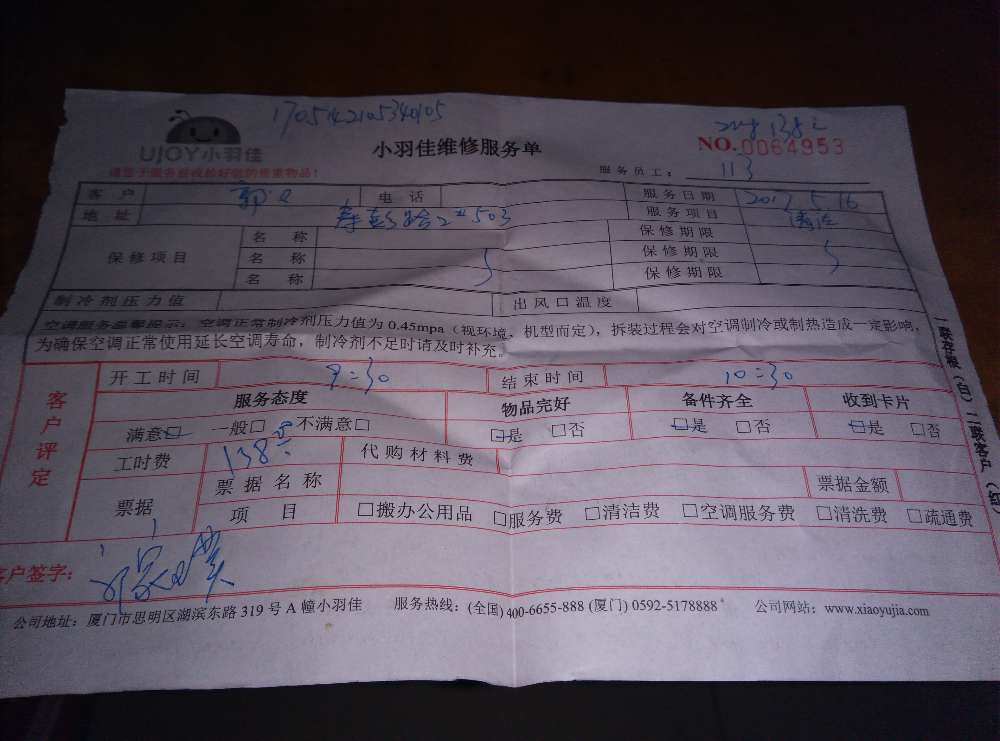 1705142105340105
UJOY小羽佳
小羽佳维修服务单
138
NO.0064953
请您于服务前收拾好您的贵重物品!
服务员工: 113
客户 郭 电话 服务日期 2017.5.16
地址 2# 503 服务项目 清洁
保修项目 名称 保修期限
名称 保修期限
名称 保修期限
制冷剂压力值 出风口温度
空调服务温馨提示:空调正常制冷剂压力值为 0.45mpa(视环境、机型而定),拆装过程会对空调制冷或制热造成一定影响,
为确保空调正常使用延长空调寿命,制冷剂不足时请及时补充。
客户评定
开工时间 9:30 结束时间 10:30
服务态度 物品完好 备件齐全 收到卡片
满意□ 一般□ 不满意□ □是 □否 □是 □否 □是 □否
工时费 138元 代购材料费
票据 票据名称 票据金额
项目 □搬办公用品 □服务费 □清洁费 □空调服务费 □清洗费 □疏通费
客户签字:
公司地址:厦门市思明区湖滨东路 319 号 A 幢小羽佳 服务热线:(全国)400-6655-888 (厦门) 0592-5178888 公司网站:www.xiaoyujia.com
一联存根(白)二联客户(红)